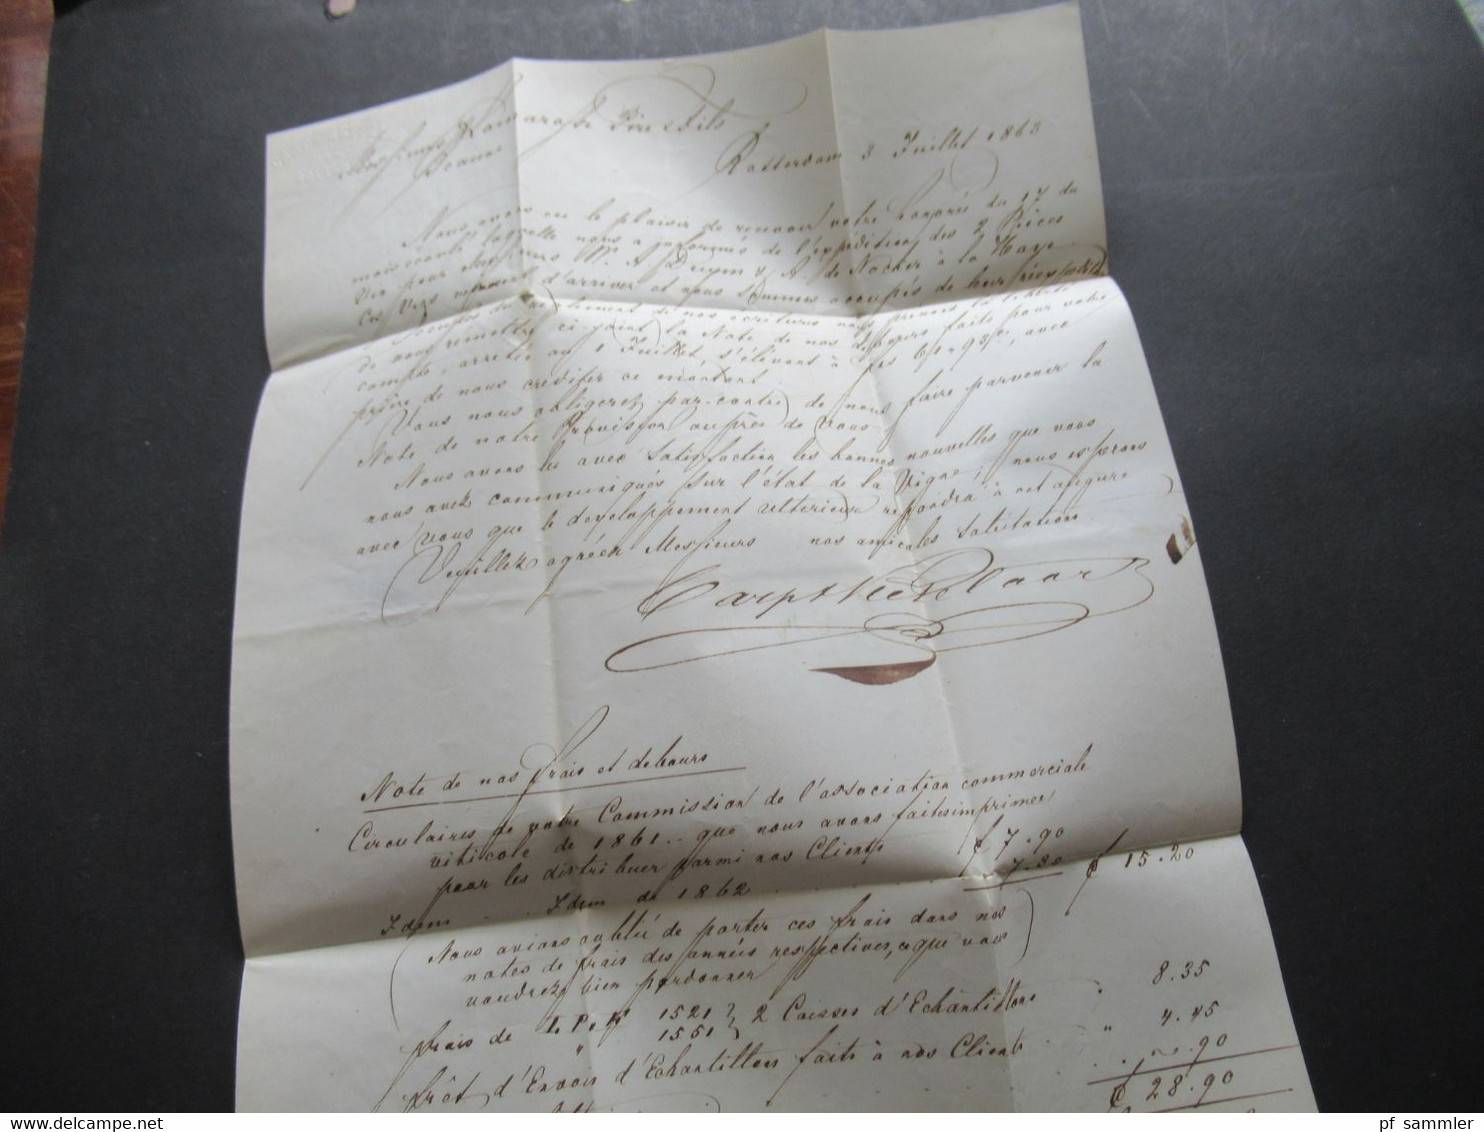 Messieurs Père & Fils
Beaune
Rotterdam 3 Juillet 1863
Nous avons eu le plaisir de recevoir votre honorée du 17 du
mois courant laquelle nous a informés de l'expédition des 2 Pièces
Vin pour Messieurs de Nocker à la Haye
Ces Vins viennent d'arriver et nous sommes occupés de leur réexpédition
de nos écritures nous prenons la liberté
de vous remettre ci-joint la Note de nos déboursés faits pour votre
compte, arrêtée au 1 Juillet, s'élevant à avec
prière de nous créditer ce montant.
Vous nous obligerez par contre de nous faire parvenir la
Note de notre Provision auprès de Vous
Nous avons lu avec Satisfaction les bonnes nouvelles que vous
nous avez communiqués sur l'état de la Vigne; nous espérons
avec Vous que le developpement ultérieur repondra à cet augure
Veuillez agréer Messieurs nos amicales Salutations
Note de nos frais et debours
Circulaires de votre Commission de l'association commerciale
viticole de 1861 .. que nous avons faites imprimer
pour les distribuer parmi nos Clients f 7.90
Idem Idem de 1862 7.30 f 15.20
(Nous avions oublié de porter ces frais dans nos
notes de frais des années respectives, ce que vous
voudrez bien pardonner)
frais de 1521 } 2 Caisses d'Echantillons " 8.35
" 1551
frêt d'Envois d'Echantillons faits à nos Clients " 4.45
.90
f 28.90
pf sammler